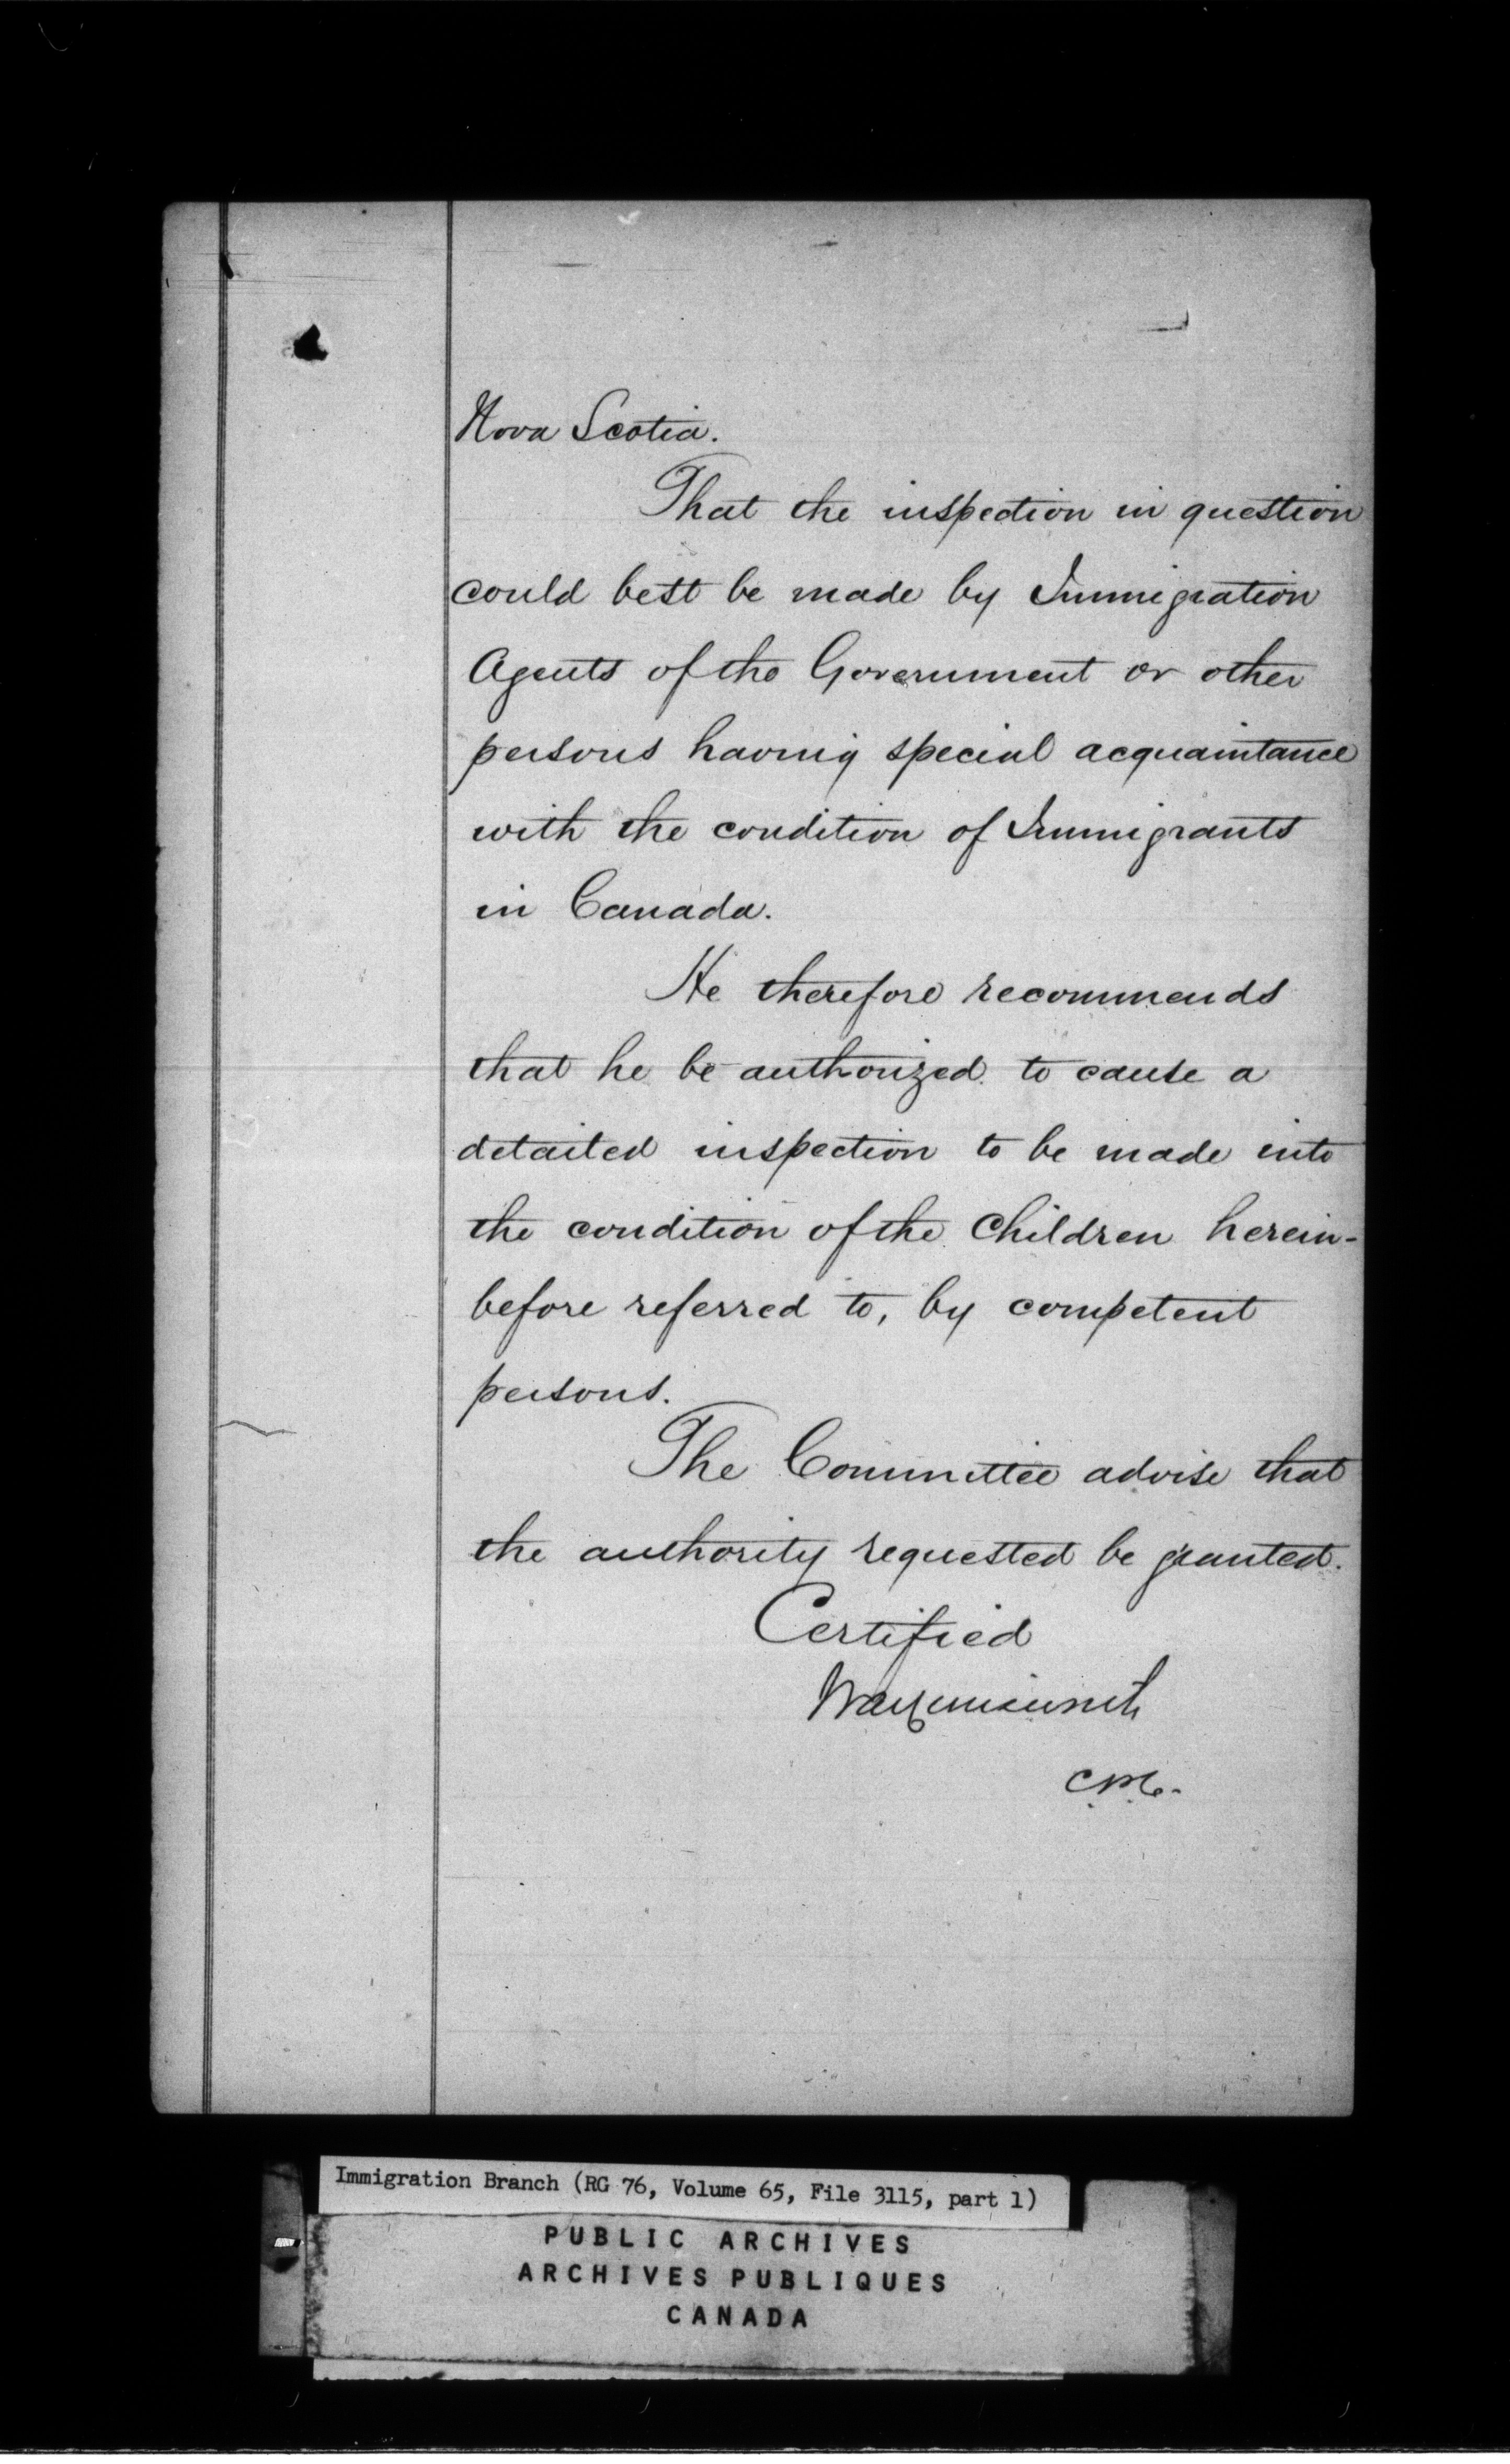 Nova Scotia.
That the inspection in question
could best be made by Immigration
Agents of the Government or other
persons having special acquaintance
with the condition of Immigrants
in Canada.
He therefore recommends
that he be authorized to cause a
detailed inspection to be made into
the condition of the Children herein-
before referred to, by competent
persons.
The Committee advise that
the authority requested be granted.
Certified
C.P.C.
Immigration Branch (RG 76, Volume 65, File 3115, part 1)
PUBLIC ARCHIVES
ARCHIVES PUBLIQUES
CANADA